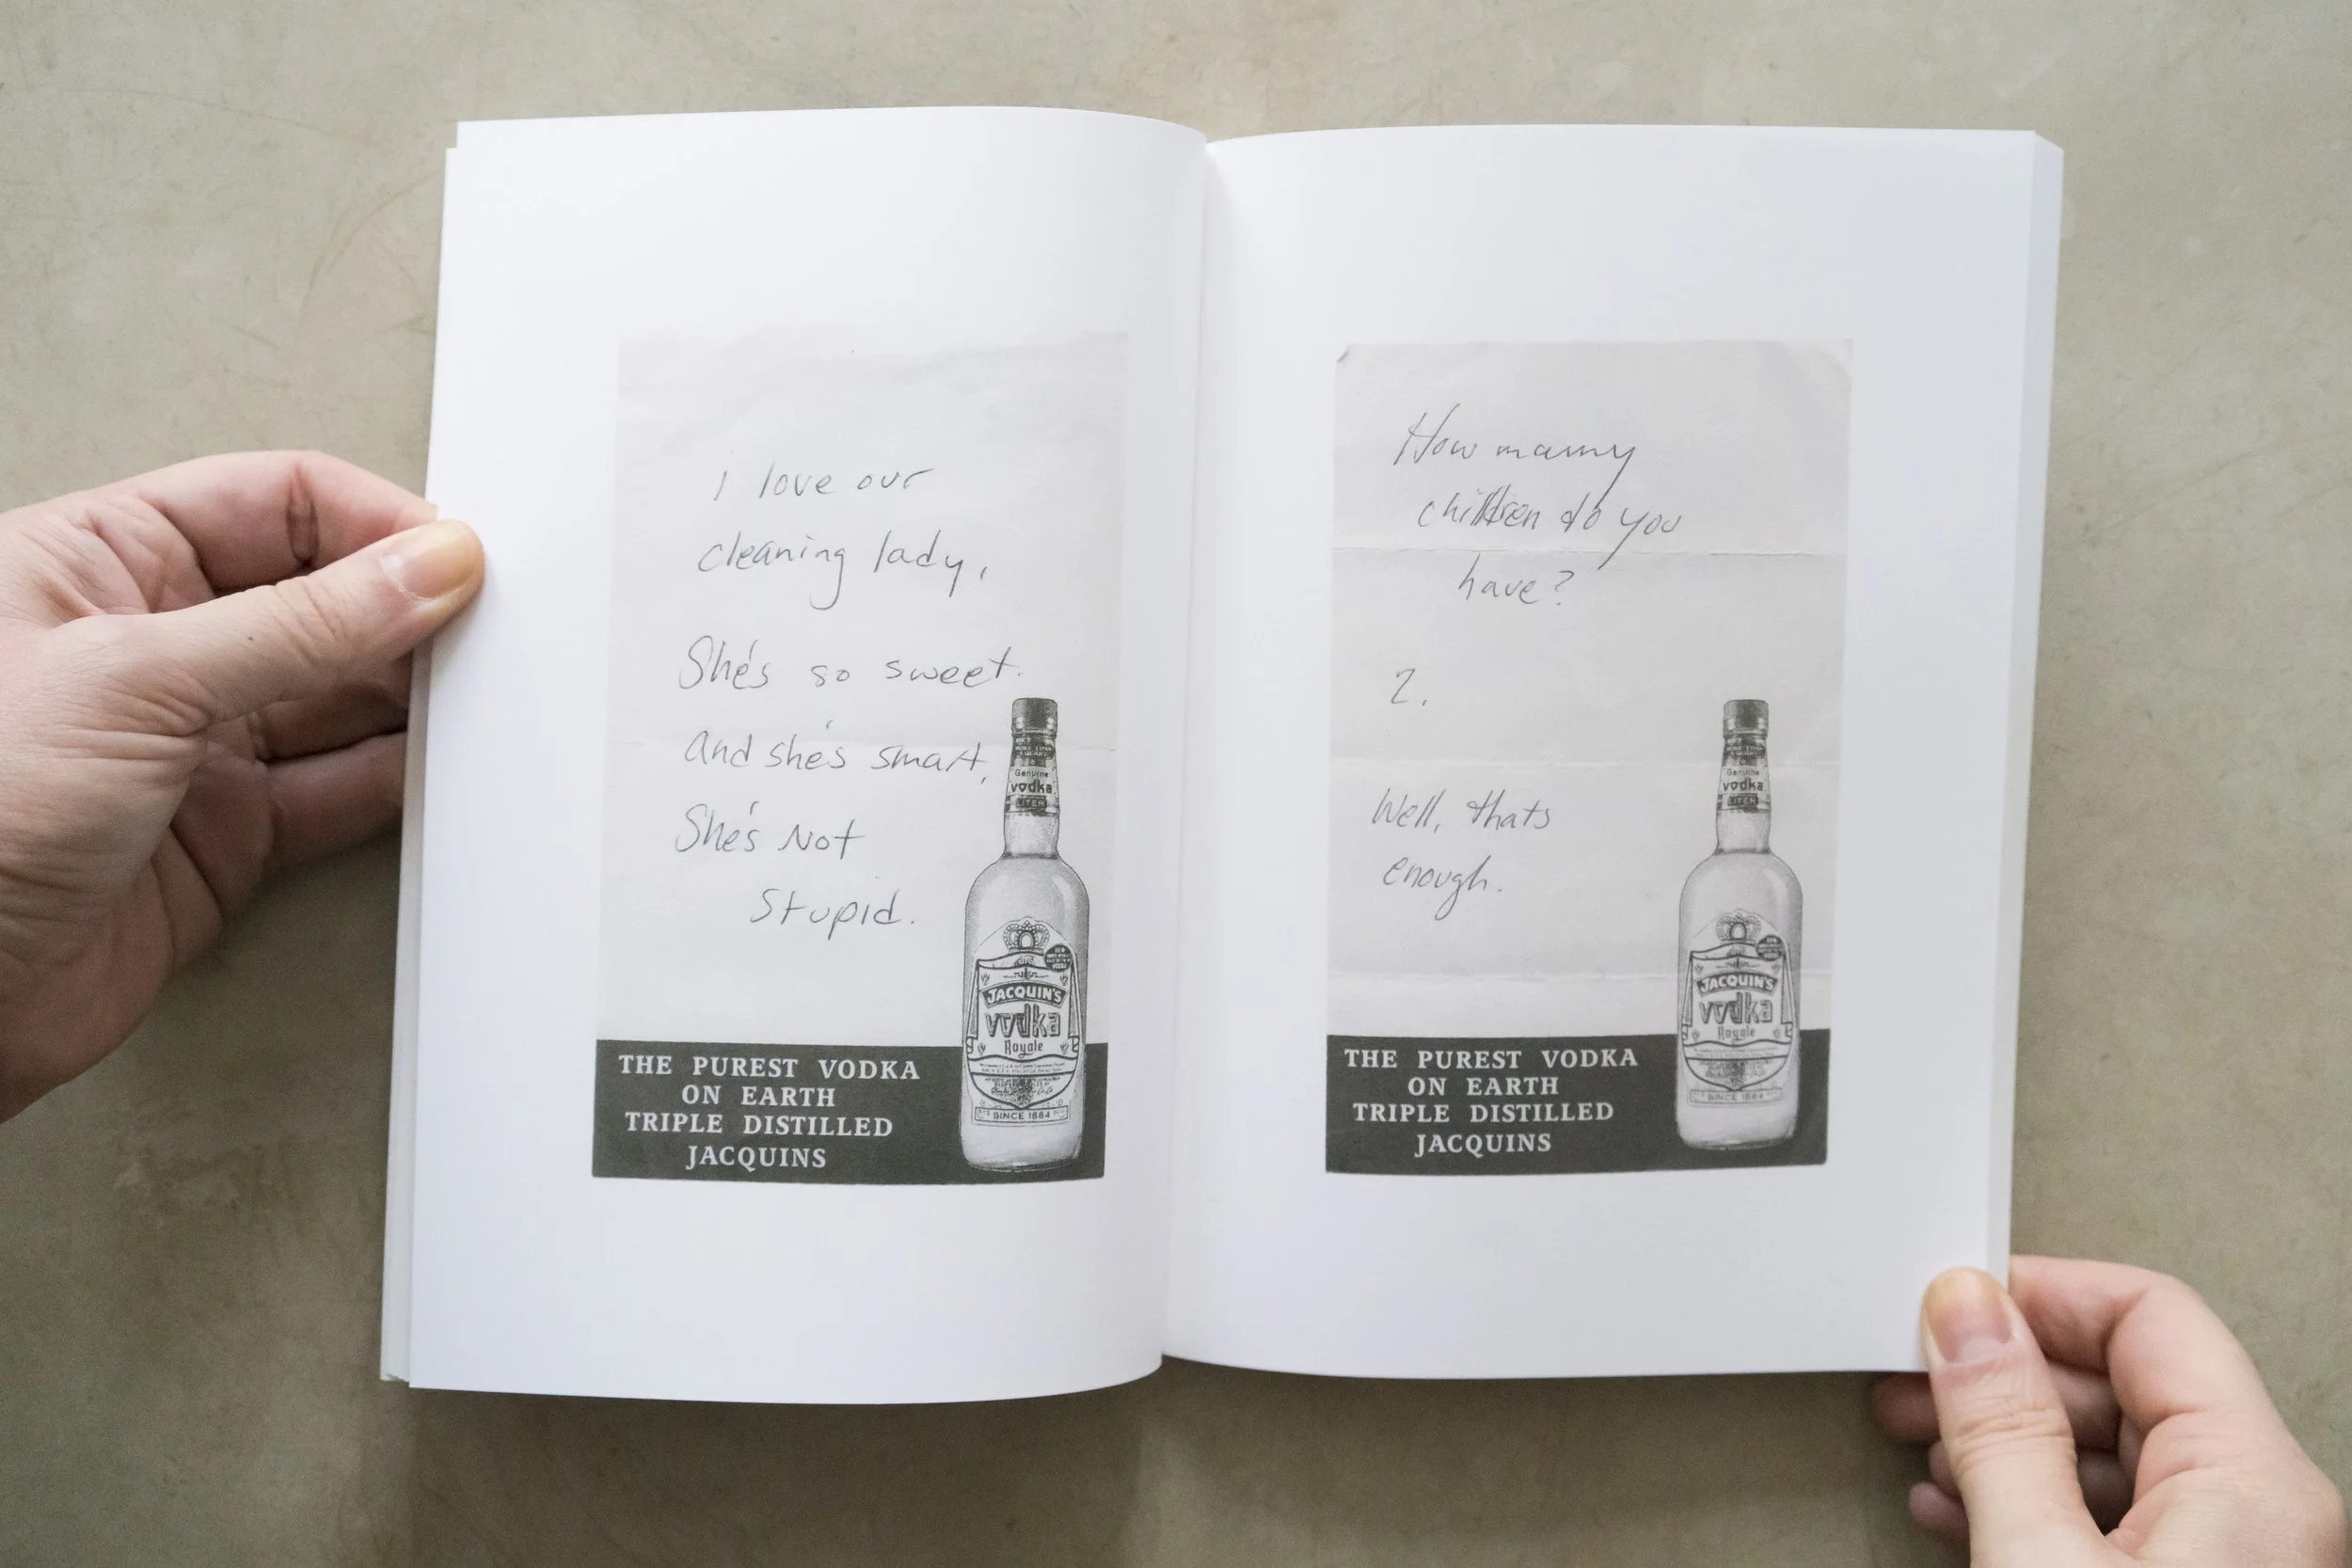 I love our
cleaning lady,
She's so sweet.
and she's smart,
She's Not
Stupid.
Genuine
vodka
LITER
JACQUIN'S
vodka
Royale
SINCE 1884
THE PUREST VODKA
ON EARTH
TRIPLE DISTILLED
JACQUINS
How manny
children do you
have?
2.
Well, thats
enough.
Genuine
vodka
LITER
JACQUIN'S
vodka
Royale
SINCE 1884
THE PUREST VODKA
ON EARTH
TRIPLE DISTILLED
JACQUINS